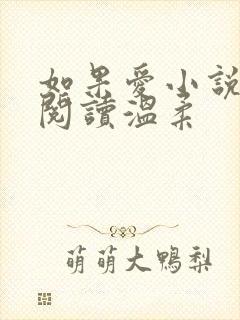 如果愛小說
閱讀溫柔
萌萌大鴨梨